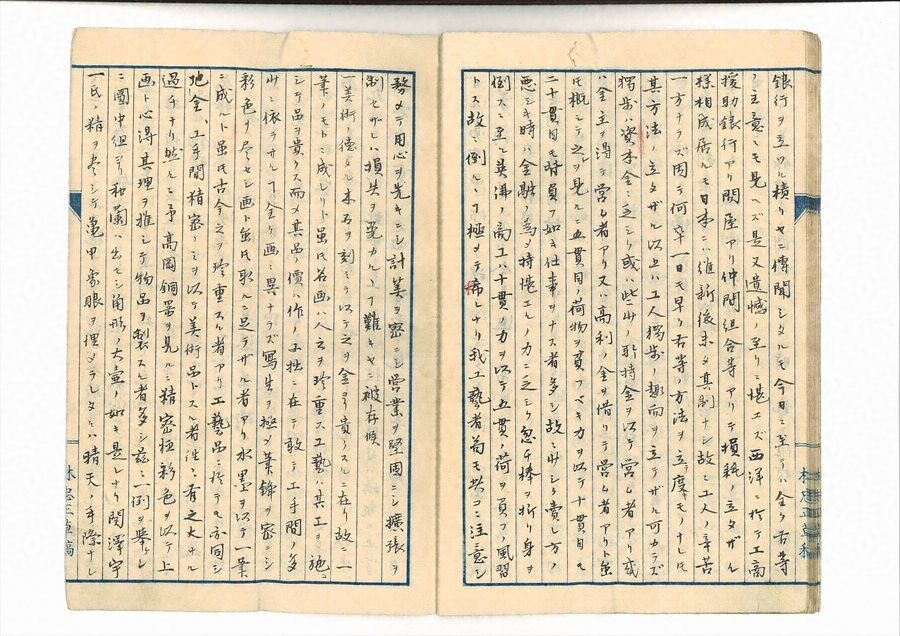 銀行ヲ立ツル積リヤニ傳聞シタルモ今日ニ至テハ全ク右等
ノ主意ニモ見ヘズ是又遺憾ノ至リニ堪エズ西洋ニ於テ工商
援助銀行アリ問屋アリ仲間組合等アリテ損耗ノ立タザル
様相成居ルモ日本ニハ維新後未タ其制ナシ故ニ工人ノ辛苦
一方ナラズ因テ何卒一日モ早ク右等ノ方法ヲ立度モノナレ𪜈
其方法ノ立タザル以上ハ工人獨歩ノ趣向ヲ立テザル可カラズ
獨歩ハ資本金ニ乏シク或ハ些少ノ所持金ヲ以テ営ム者アリ或
ハ金主ヲ得テ営ム者アリ又ハ高利ノ金ヲ借リテ営ム者アリト雖
𪜈概シテ之ヲ見ルニ五貫目ノ荷物ヲ負フベキ力ヲ以テ十貫目
二十貫目モ背負フ如キ仕事ヲナス者多シ故ニ少シ賣レ方ノ
悪シキ時ハ金融ノ為メ持堪エルノ力ニ乏シク忽チ棒ヲ折リ身ヲ
倒スニ至ル英佛ノ商工ハ十貫ノ力ヲ以テ五貫ノ荷ヲ負フノ風習
トス故ニ倒ルヽヿ極メテ希レナリ我工藝者苟モ共ニ注意シ
務メテ用心ヲ先キニシ計美ヲ密ニシ営業ヲ堅固ニシ擴張ヲ
制セザレハ損失ヲ免カルヽヿ難キヤニ被存候
一美術ノ德タル木石ヲ刻ミテ以テ之ヲ金ヨリ貴クスルニ在リ故ニ一
筆ノモトニ成レリト虽𪜈名画ハ人之ヲ珍重ス工藝ハ其工ヲ施
シテ品ヲ貴クス而メ其品ノ價ハ作ノ工拙ニ在テ敢テ工手間ノ多
少ニ依ラサルヿ全ク画ニ異ナラズ寫生ヲ極メ筆鋒ヲ密ニシ
彩色ヲ尽セシ画ト虽𪜈取ルニ足ラザル者アリ水墨ヲ以テ一筆
ニ成ルト虽𪜈古今之ヲ珍重スル者アリ工藝品ニ於テモ亦同シ
地金、工手間精密ノミヲ以テ美術品トスル者往ニ有之大ナル
過チナリ然ルニ予高岡銅器ヲ見ルニ精密極彩色ヲ以テ上
画ト心得其理ヲ推シテ物品ヲ製スル者多シ茲ニ一例ヲ舉クレ
ハ圓中組ヨリ和蘭ヘ出セシ角形ノ大壷ノ如キ是レナリ関澤宇
一氏ノ精ヲ尽シテ亀甲象眼ヲ埋メラレタルハ晴天ノ手際ナレ
林忠正草稿
林忠正草稿